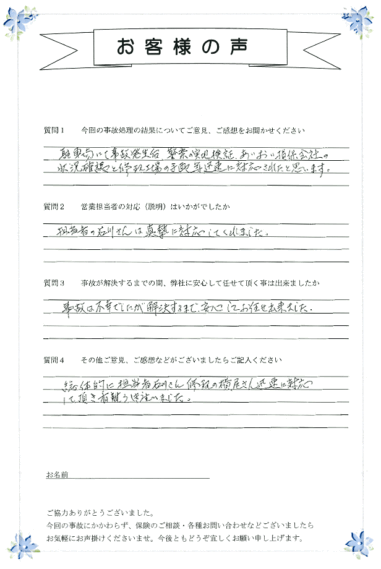 お客様の声
質問1 今回の事故処理の結果についてご意見、ご感想をお聞かせください
状況確認と 迅速に対応されたと思います。
質問2 営業担当者の対応(説明)はいかがでしたか
担当者の石川さんは真摯に対応してくれました。
質問3 事故が解決するまでの間、弊社に安心して任せて頂く事は出来ましたか
事故は 解決するまで安心してお任せ出来ました。
質問4 その他ご意見、ご感想などがございましたらご記入ください
総体的に担当者石川さん 迅速に対応
して頂き有難う御座いました。
お名前
ご協力ありがとうございました。
今回の事故にかかわらず、保険のご相談・各種お問い合わせなどございましたら
お気軽にお声掛けくださいませ。今後ともどうぞ宜しくお願い申し上げます。